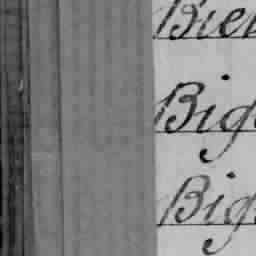 Bie
Big
Big